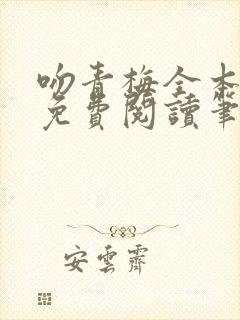 吻青梅全本
免費閱讀筆
安雲霽